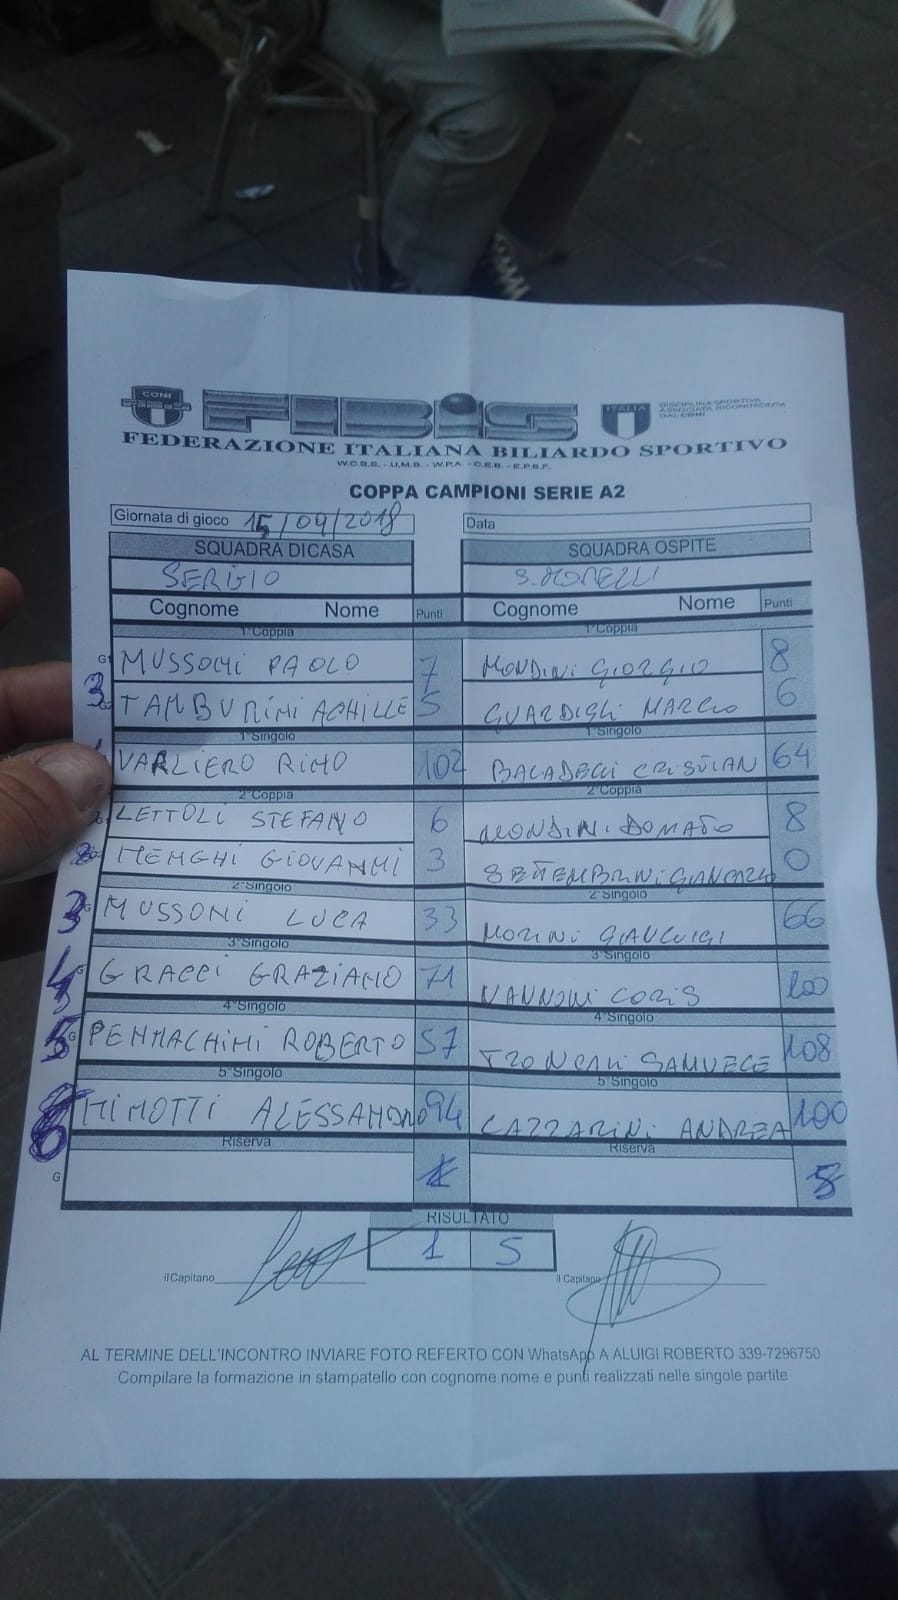 CONI
FIBiS
ITALIA
DISCIPLINA SPORTIVA
ASSOCIATA RICONOSCIUTA
DAL CONI
FEDERAZIONE ITALIANA BILIARDO SPORTIVO
W.C.B.S. - U.M.B. - W.P.A. - C.E.B. - E.P.B.F.
COPPA CAMPIONI SERIE A2
Giornata di gioco 15/09/2018 Data
SQUADRA DI CASA SQUADRA OSPITE
SERGIO S. MORELLI
Cognome Nome Punti Cognome Nome Punti
1°Coppia 1°Coppia
G1 MUSSONI PAOLO 7 MONDINI GIORGIO 8
3 G2 TAMBURINI ACHILLE 5 GUARDIGLI MARCO 6
1°Singolo 1°Singolo
VARLIERO RINO 102 CRISTIAN 64
2°Coppia 2°Coppia
LETTOLI STEFANO 6 MONDINI DONATO 8
MENGHI GIOVANNI 3 SETTEMBRINI GIANCARLO 0
2°Singolo 2°Singolo
3 G MUSSONI LUCA 33 MORINI GIANLUIGI 66
3°Singolo 3°Singolo
4 G GRACCI GRAZIANO 71 VANNONI LORIS 100
4°Singolo 4°Singolo
5 G PENNACHINI ROBERTO 57 TRONCALI SAMUELE 108
5°Singolo 5°Singolo
6 MINOTTI ALESSANDRO 94 LAZZARINI ANDREA 100
Riserva Riserva
G 5
RISULTATO
1 5
il Capitano il Capitano
AL TERMINE DELL'INCONTRO INVIARE FOTO REFERTO CON WhatsApp A ALUIGI ROBERTO 339-7296750
Compilare la formazione in stampatello con cognome nome e punti realizzati nelle singole partite